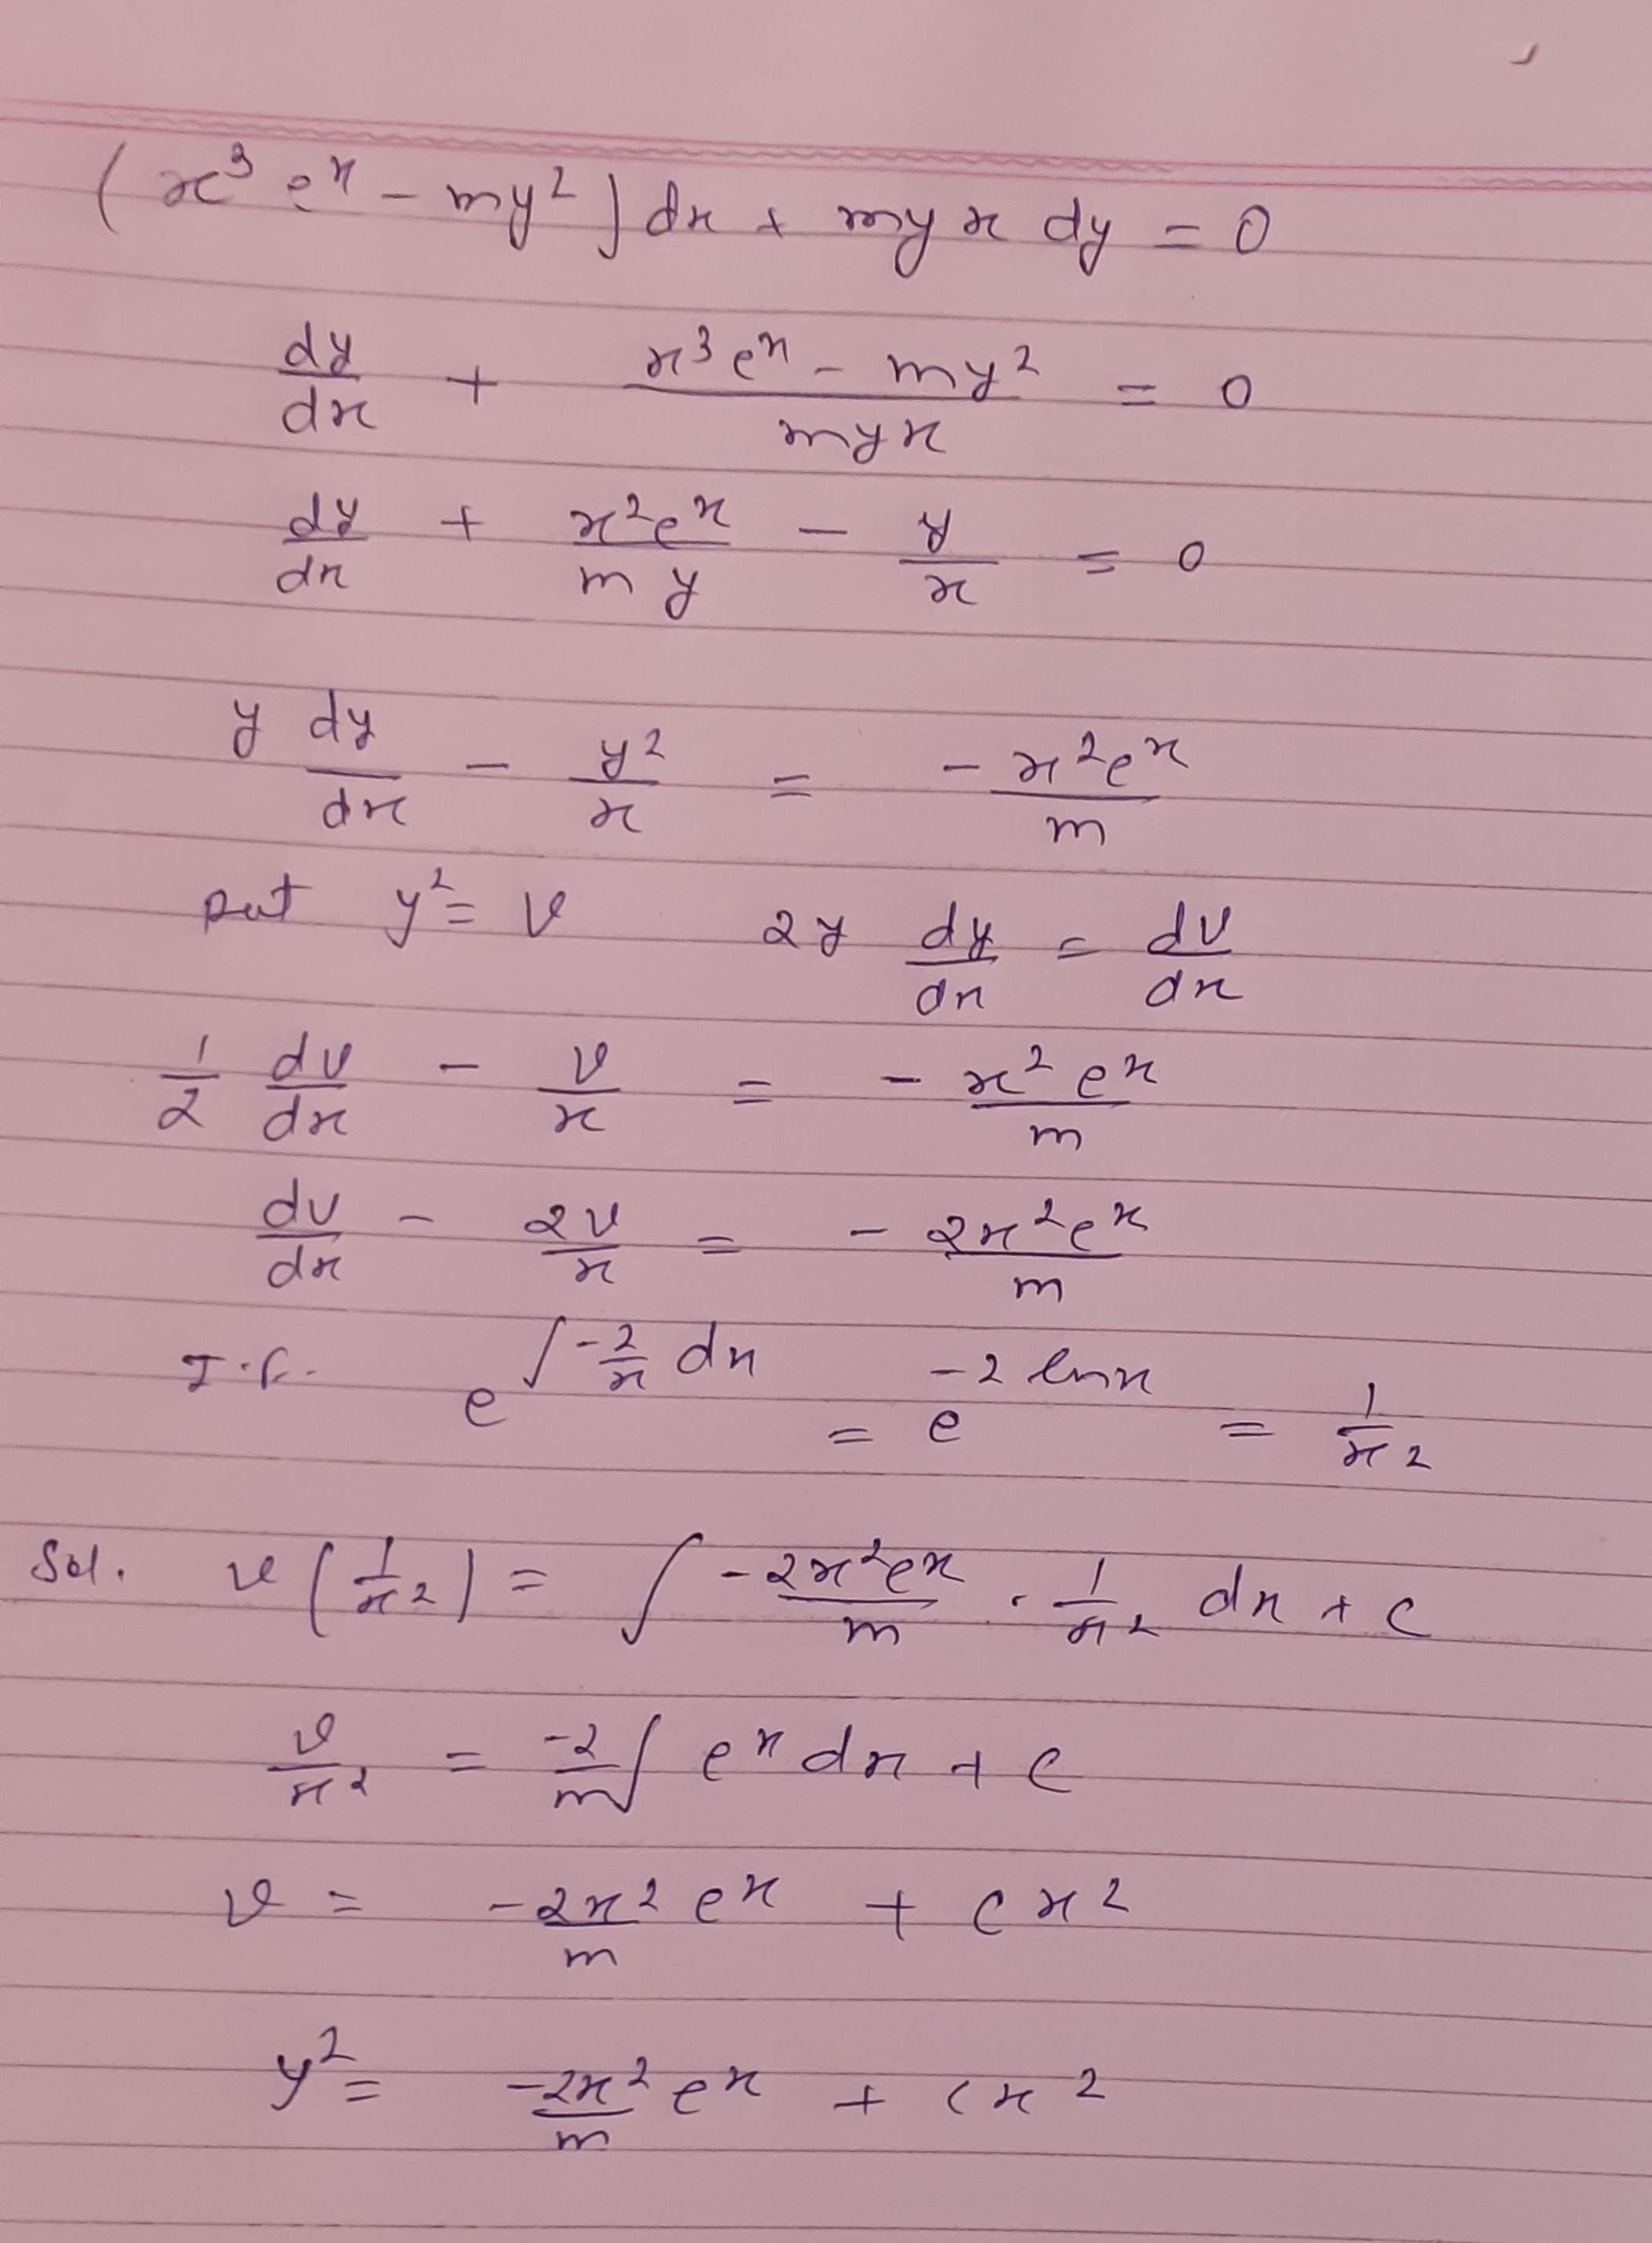 (x³ eˣ - my²) dx + myx dy = 0
dy/dx + (x³eˣ - my²)/(myx) = 0
dy/dx + x²eˣ/(my) - y/x = 0
y dy/dx - y²/x = -x²eˣ/m
put y² = v 2y dy/dx = dv/dx
1/2 dv/dx - v/x = -x² eˣ/m
dv/dx - 2v/x = -2x²eˣ/m
I.F. e^(∫-2/x dx) = e^(-2 lnx) = 1/x²
Sol. v(1/x²) = ∫ -2x²eˣ/m · 1/x² dx + c
v/x² = -2/m ∫ eˣ dx + c
v = -2x²/m eˣ + cx²
y² = -2x²/m eˣ + cx²